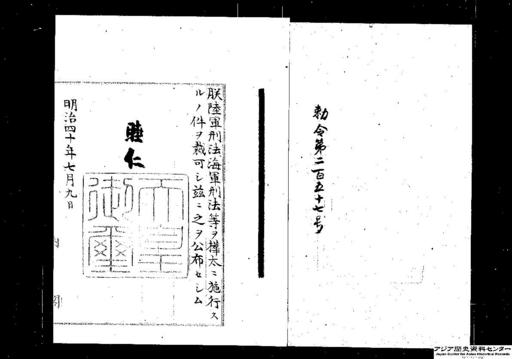 勅令第二百五十七号
朕陸軍刑法海軍刑法等ヲ樺太ニ施行ス
ルノ件ヲ裁可シ茲ニ之ヲ公布セシム
睦仁
天皇
御璽
明治四十年七月九日
内閣
アジア歴史資料センター
Japan Center for Asian Historical Records